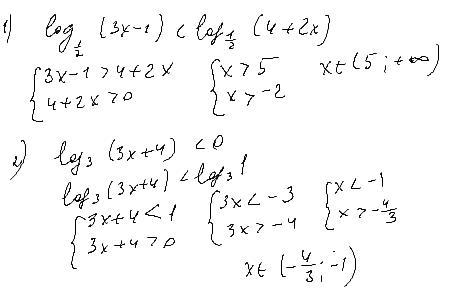 1) log_{1/2} (3x-1) < log_{1/2} (4+2x)
{3x-1 > 4+2x {x > 5 x∈(5; +∞)
{4+2x > 0 {x > -2
2) log₃ (3x+4) < 0
log₃ (3x+4) < log₃ 1
{3x+4 < 1 {3x < -3 {x < -1
{3x+4 > 0 {3x > -4 {x > -4/3
x∈ (-4/3; -1)